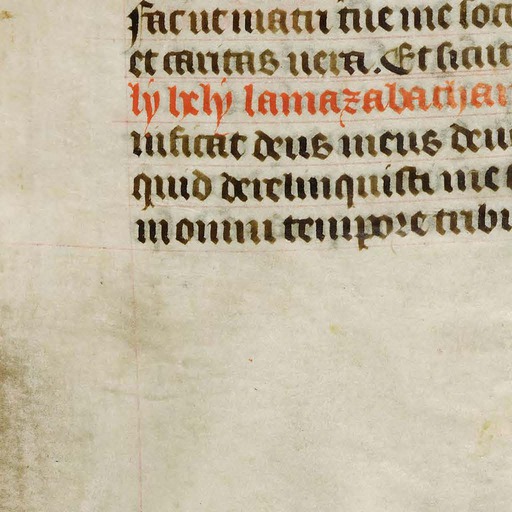 fac ut matri tue me soci
et caritas uera. Et sicut
ly hely lamazabathan
nificat deus meus deu
quid dereliquisti me
in omni tempore tribu